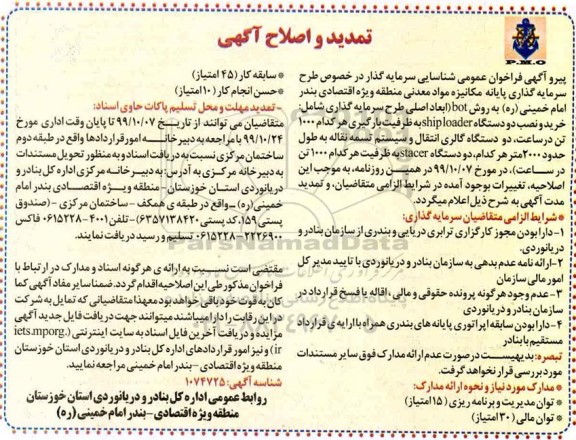 تمدید و اصلاح آگهی
P.M.O
پیرو آگهی فراخوان عمومی شناسایی سرمایه گذار در خصوص طرح
سرمایه گذاری پایانه مکانیزه مواد معدنی منطقه ویژه اقتصادی بندر
امام خمینی (ره) به روش bot (ابعاد اصلی طرح سرمایه گذاری شامل:
خرید و نصب دو دستگاه shiploader به ظرفیت بارگیری هر کدام ۱۰۰۰
تن در ساعت، دو دستگاه گالری انتقال و سیستم تسمه نقاله به طول
حدود ۲۰۰۰ متر هر کدام، دو دستگاه stacer به ظرفیت هر کدام ۱۰۰۰ تن
در ساعت)، در مورخ ۹۹/۱۰/۰۷ در همین روزنامه، به موجب این
اصلاحیه، تغییرات بوجود آمده در شرایط الزامی متقاضیان، و تمدید
مدت آگهی به شرح ذیل اعلام میگردد.
* شرایط الزامی متقاضیان سرمایه گذاری:
۱- دارا بودن مجوز کارگزاری ترابری دریایی و بندری از سازمان بنادر و
دریانوردی.
۲- ارائه نامه عدم بدهی به سازمان بنادر و دریانوردی با تایید مدیر کل
امور مالی سازمان
۳- عدم وجود هرگونه پرونده حقوقی و مالی، اقاله یا فسخ قرارداد در
سازمان بنادر و دریانوردی
۴- دارا بودن سابقه اپراتوری پایانه های بندری همراه با ارایه ی قرارداد
مستقیم با بنادر
تبصره: بدیهیست در صورت عدم ارائه مدارک فوق سایر مستندات
مورد بررسی قرار نخواهد گرفت.
* مدارک مورد نیاز و نحوه ارائه مدارک:
* توان مدیریت و برنامه ریزی (۱۵ امتیاز)
* توان مالی (۳۰ امتیاز)
* سابقه کار (۴۵ امتیاز)
* حسن انجام کار (۱۰ امتیاز)
- تمدید مهلت و محل تسلیم پاکات حاوی اسناد:
متقاضیان می توانند از تاریخ ۹۹/۱۰/۰۷ تا پایان وقت اداری مورخ
۹۹/۱۰/۲۴ با مراجعه به دبیرخانه امور قراردادها واقع در طبقه دوم
ساختمان مرکزی نسبت به دریافت اسناد و به منظور تحویل مستندات
به دبیرخانه مرکزی به آدرس: به دبیرخانه مرکزی اداره کل بنادر و
دریانوردی استان خوزستان - منطقه ویژه اقتصادی بندر امام
خمینی (ره) - واقع در طبقه ی همکف - ساختمان مرکزی - (صندوق
پستی ۱۵۹، کد پستی ۶۳۵۷۱۳۸۴۲۰) - تلفن ۴۰۰۱-۰۶۱۵۲۲۸ فاکس
۰۶۱۵۲۲۸-۲۲۲۶۹۰۰ تسلیم و رسید دریافت نمایند.
مقتضی است نسبت به ارائه ی هرگونه اسناد و مدارک در ارتباط با
فراخوان مذکور طی این اصلاحیه اقدام گردد. ضمنا سایر مفاد آگهی کما
کان به قوت خود باقی خواهد بود معهذا متقاضیانی که تمایل به شرکت
در این رقابت را دارا میباشند میتوانند جهت دریافت فایل جدید آگهی
مزایده و دریافت آخرین فایل اسناد به سایت اینترنتی (iets.mporg.
ir) و نیز امور قراردادهای اداره کل بنادر و دریانوردی استان خوزستان
منطقه ویژه اقتصادی - بندر امام خمینی مراجعه نمایید.
شناسه آگهی: ۱۰۷۴۷۲۵
روابط عمومی اداره کل بنادر و دریانوردی استان خوزستان
منطقه ویژه اقتصادی - بندر امام خمینی (ره)
ParsNamadData